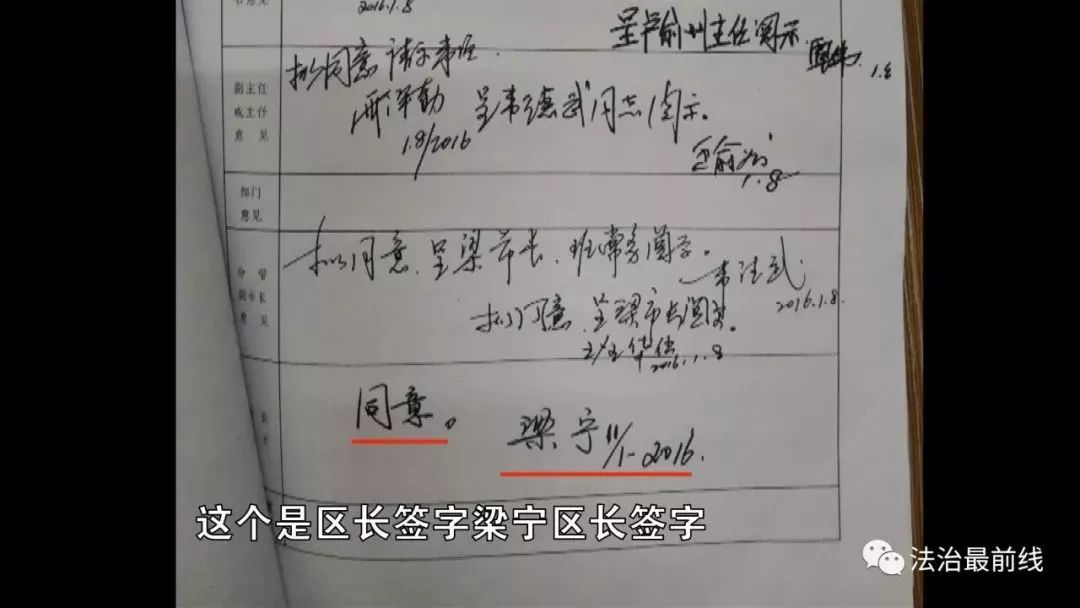 2016.1.8
呈卢俞州主任阅示
1.8
拟同意 请示事宜
副主任
或主任
意 见
1.8/2016
呈韦德武同志阅示。
1.8
部门
意见
拟同意,呈梁市长、班常务阅示。
分管
副市长
意见
2016.1.8.
拟同意,呈梁市长阅示。
2016.1.8
同意。
梁宁 11/1-2016.
这个是区长签字梁宁区长签字
法治最前线